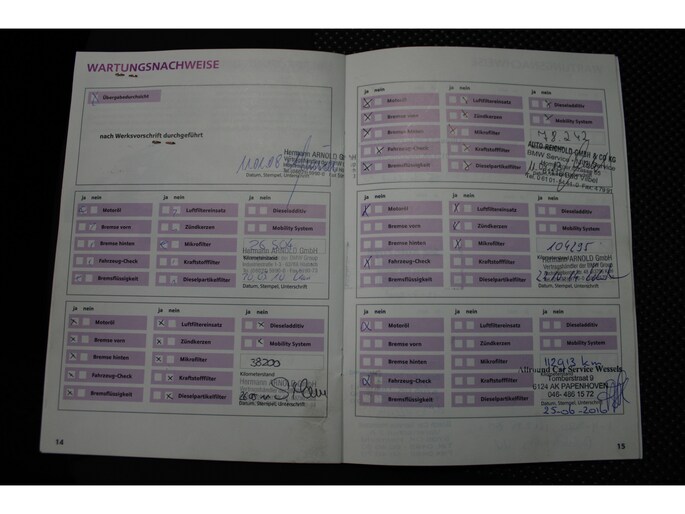 WARTUNGSNACHWEISE
Übergabedurchsicht
nach Werksvorschrift durchgeführt
Hermann ARNOLD GmbH
Datum, Stempel, Unterschrift
ja nein ja nein ja nein
Motoröl Luftfiltereinsatz Dieseladditiv
Bremse vorn Zündkerzen Mobility System
Bremse hinten Mikrofilter
Fahrzeug-Check Kraftstofffilter
Bremsflüssigkeit Dieselpartikelfilter
Kilometerstand
Hermann ARNOLD GmbH
Datum, Stempel, Unterschrift
ja nein ja nein ja nein
Motoröl Luftfiltereinsatz Dieseladditiv
Bremse vorn Zündkerzen Mobility System
Bremse hinten Mikrofilter
38200
Kilometerstand
Fahrzeug-Check Kraftstofffilter
Hermann ARNOLD GmbH
Bremsflüssigkeit Dieselpartikelfilter
Datum, Stempel, Unterschrift
14
ja nein ja nein ja nein
Motoröl Luftfiltereinsatz Dieseladditiv
Bremse vorn Zündkerzen Mobility System
Bremse hinten Mikrofilter
78242
Fahrzeug-Check Kraftstofffilter
AUTO REICHOLD GMBH & CO KG
BMW Service
Bremsflüssigkeit Dieselpartikelfilter
ja nein ja nein ja nein
Motoröl Luftfiltereinsatz Dieseladditiv
Bremse vorn Zündkerzen Mobility System
Bremse hinten Mikrofilter
104295
Hermann ARNOLD GmbH
Vertragshändler der BMW Group
Fahrzeug-Check Kraftstofffilter
Bremsflüssigkeit Dieselpartikelfilter
Datum, Stempel, Unterschrift
ja nein ja nein ja nein
Motoröl Luftfiltereinsatz Dieseladditiv
Bremse vorn Zündkerzen Mobility System
Bremse hinten Mikrofilter
112913 km
Allround Car Service Wessels
Fahrzeug-Check Kraftstofffilter
Tomberstraat 9
6124 AK PAPENHOVEN
Bremsflüssigkeit Dieselpartikelfilter
046-486 15 72
Datum, Stempel, Unterschrift
25-06-2016
15